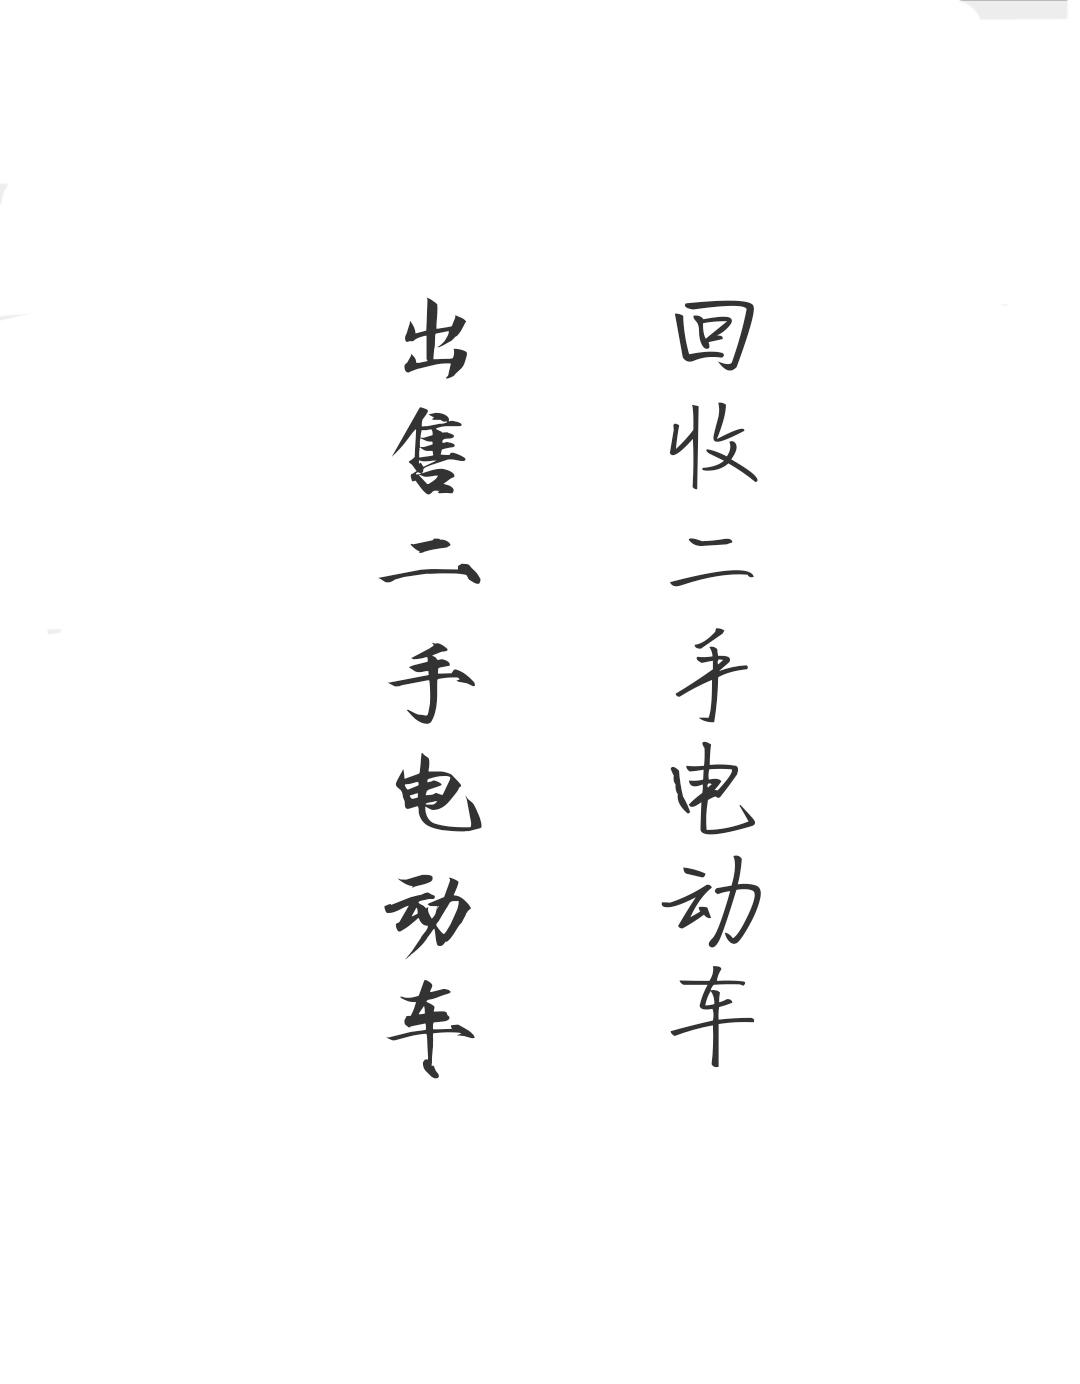 回收二手电动车
出售二手电动车